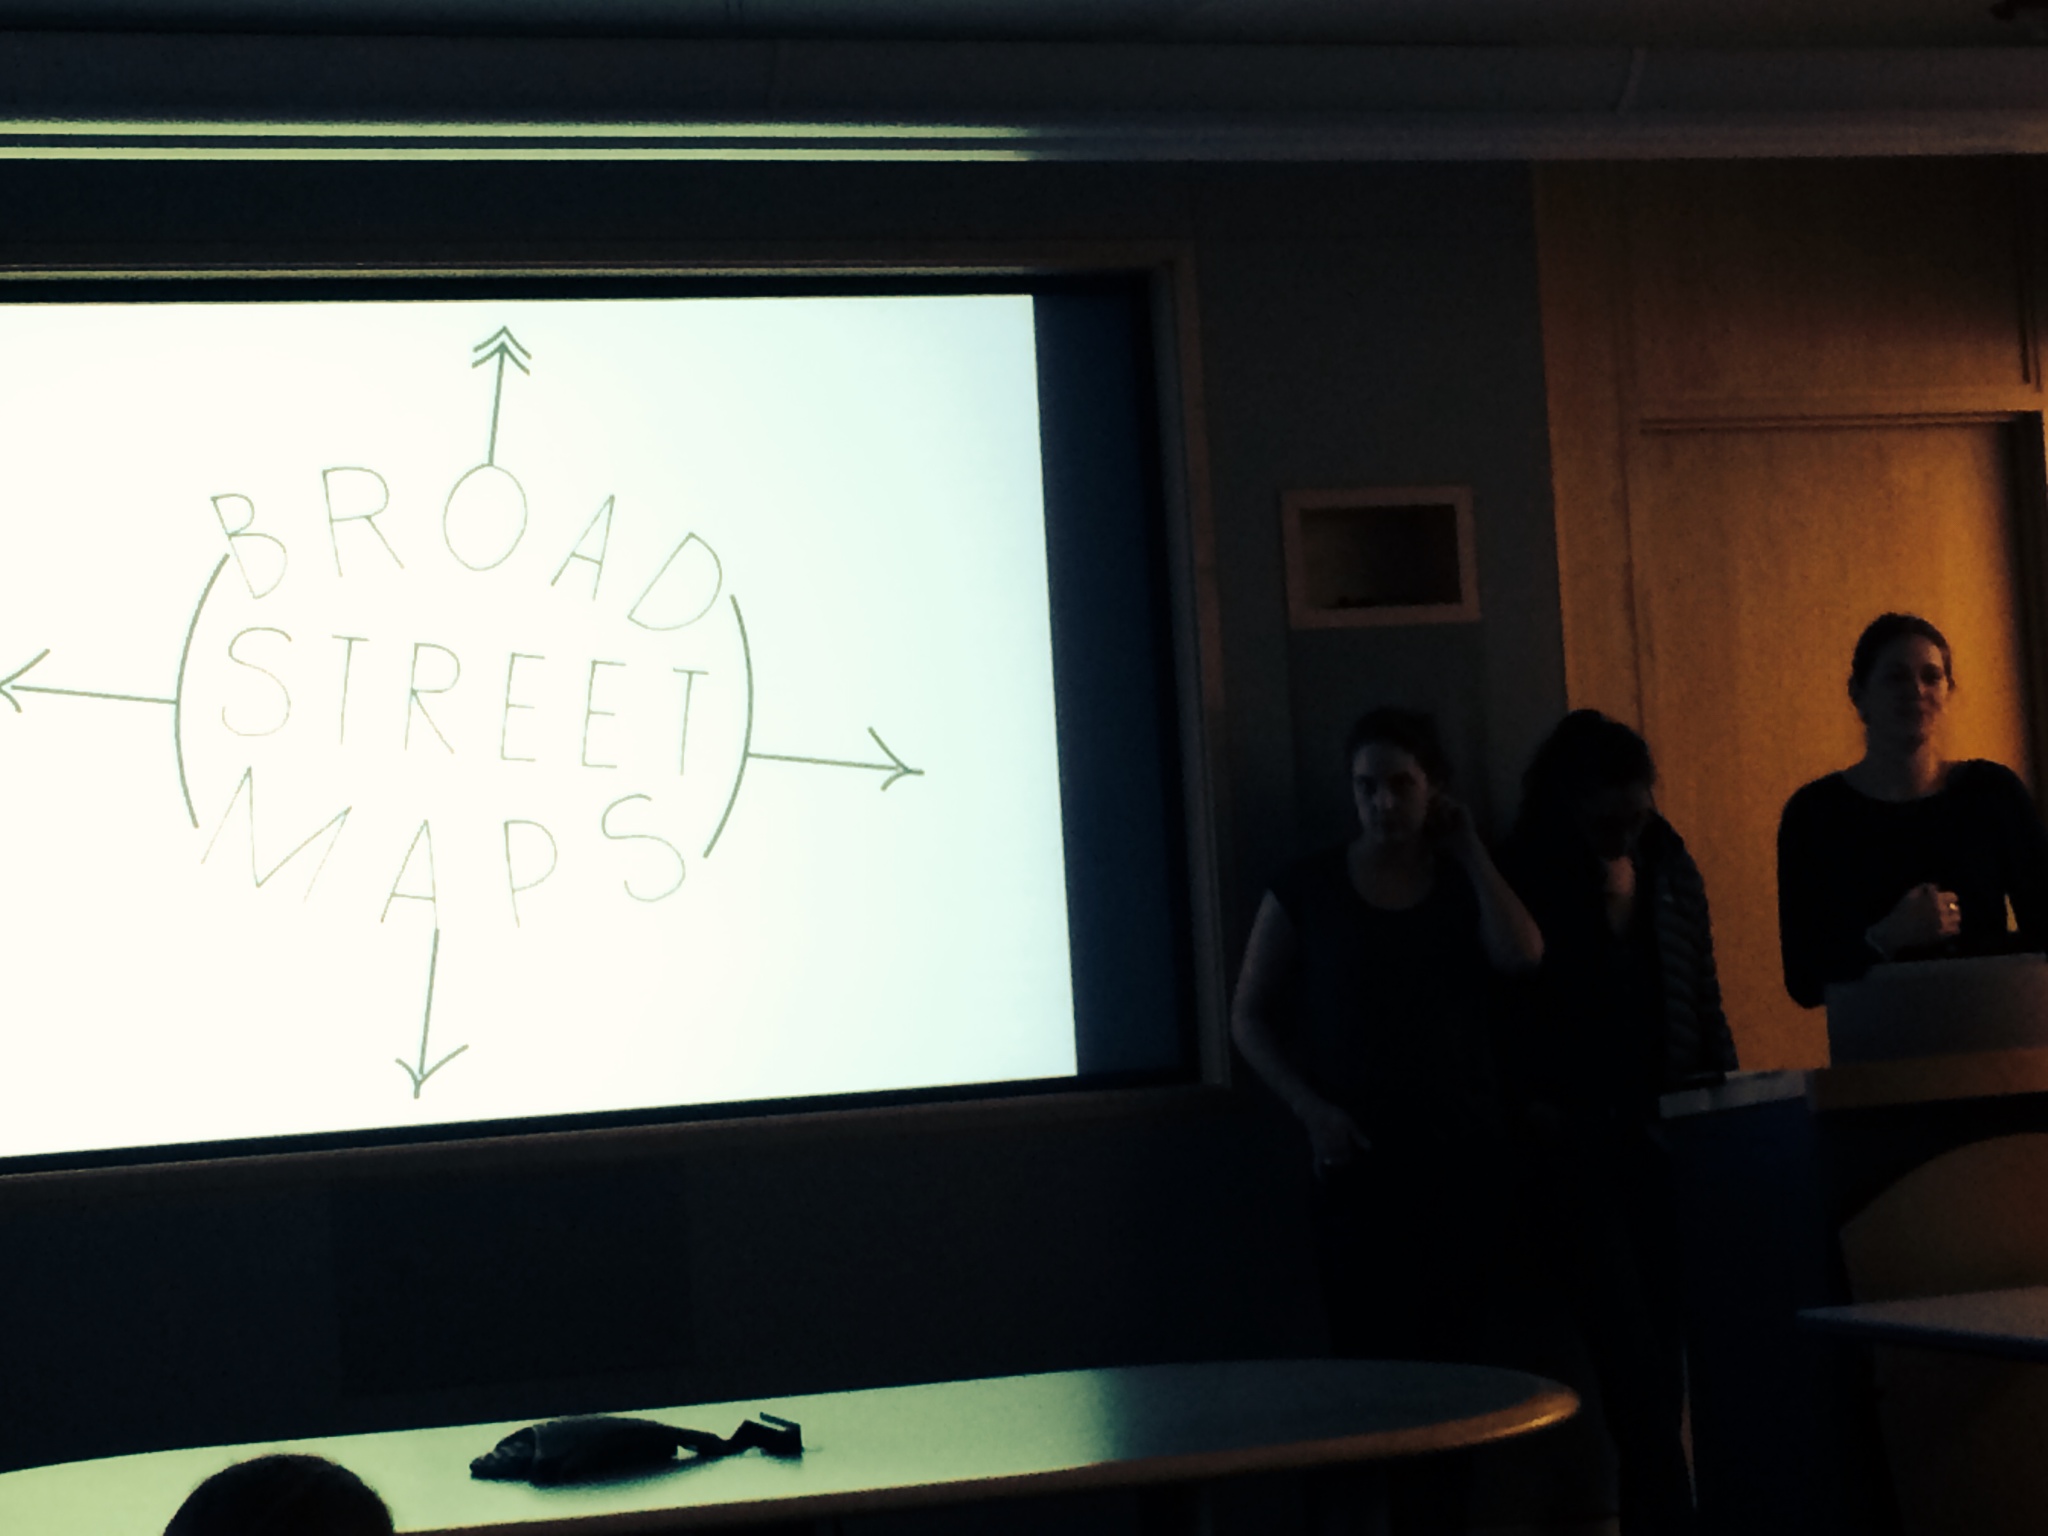 BROAD
STREET
MAPS